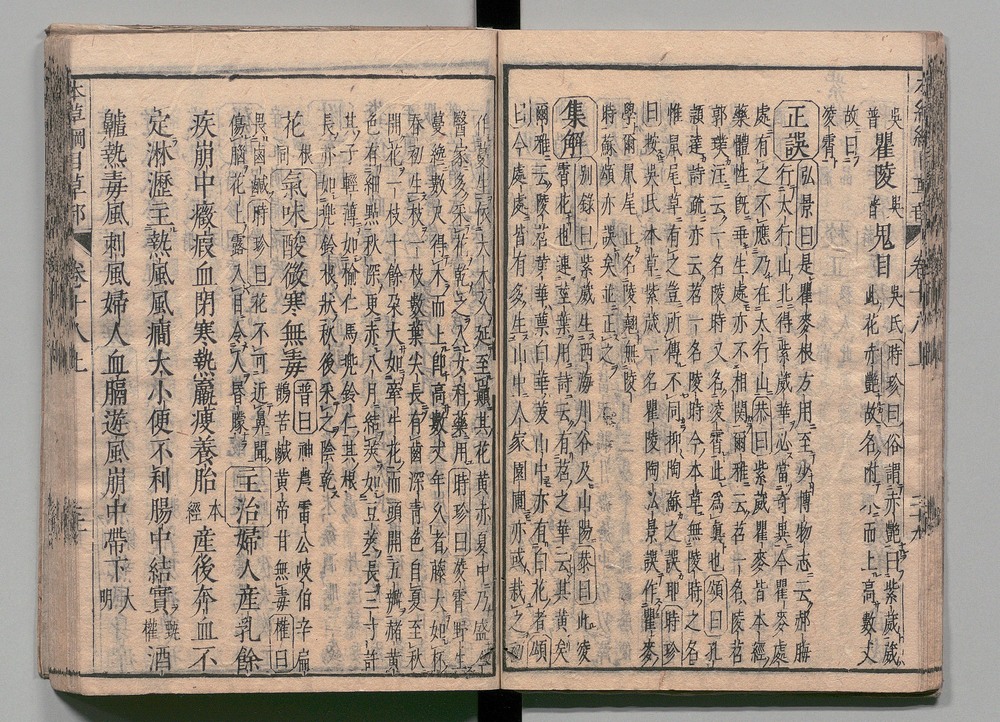 瞿陵 吳普 鬼目 吳氏 時珍曰俗謂赤艷曰紫葳葳
此花赤艷故名附木而上高數丈
故曰
凌霄
正誤 弘景曰是瞿麥根方用至少博物志云郝晦
行太行山北得紫葳華必當奇異今瞿麥處
處有之不應乃在太行山恭曰紫葳瞿麥皆本經
藥體性既乖生處亦不相關爾雅云苕一名陵苕
郭璞云一名陵時又名凌霄此為真也頌曰孔
穎達詩疏亦云苕一名陵時今本草無陵時之名
惟鼠尾草有之豈所傳不同抑陶蘇之誤耶時珍
曰按吳氏本草紫葳一名瞿陵陶弘景誤作瞿麥
字爾鼠尾止名陵翹無陵
時蘇頌亦誤矣
集解 別錄曰紫葳生西海川谷及山陽恭曰此凌
霄花也連莖葉用詩云有苕之華云其黃矣
爾雅云陵苕黃華蔈白華茇山中亦有白花者頌
曰今處處皆有多生山中人家園圃亦或栽之初
作蔓生依大木久延至巔其花黃赤夏中乃盛
醫家多采花乾之入女科藥用時珍曰凌霄野生
蔓纔數尺得木而上即高數丈年久者藤大如杯
春初生枝一枝數葉尖長有齒深青色自夏至秋
開花一枝十餘朵大如牽牛花而頭開五瓣赭黃
色有細點秋深更赤八月結莢如豆莢長三寸許
其子輕薄如榆仁馬兜鈴仁其根
長亦如兜鈴根狀秋後采之陰乾
花 根同 氣味酸微寒無毒 普曰神農雷公岐伯辛扁
鵲苦鹹黃帝甘無毒權曰
畏鹵鹹時珍曰花不可近鼻聞
傷腦花上露入目令人昏矇 主治婦人產乳餘
疾崩中癥瘕血閉寒熱羸瘦養胎 本經 產後奔血不
定淋瀝主熱風風癇大小便不利腸中結實 甄權 酒
齇熱毒風刺風婦人血膈遊風崩中帶下 大明
卷十八上
本草綱目草部
卷十八上